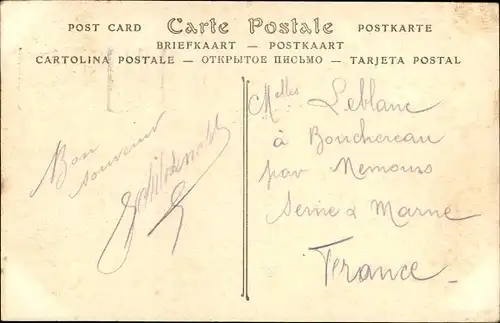 POST CARD Carte Postale POSTKARTE
BRIEFKAART — POSTKAART
CARTOLINA POSTALE — ОТКРЫТОЕ ПИСЬМО — TARJETA POSTAL
Bon
souvenir
Melles Leblanc
à Bouchereau
par Nemours
Seine & Marne
France